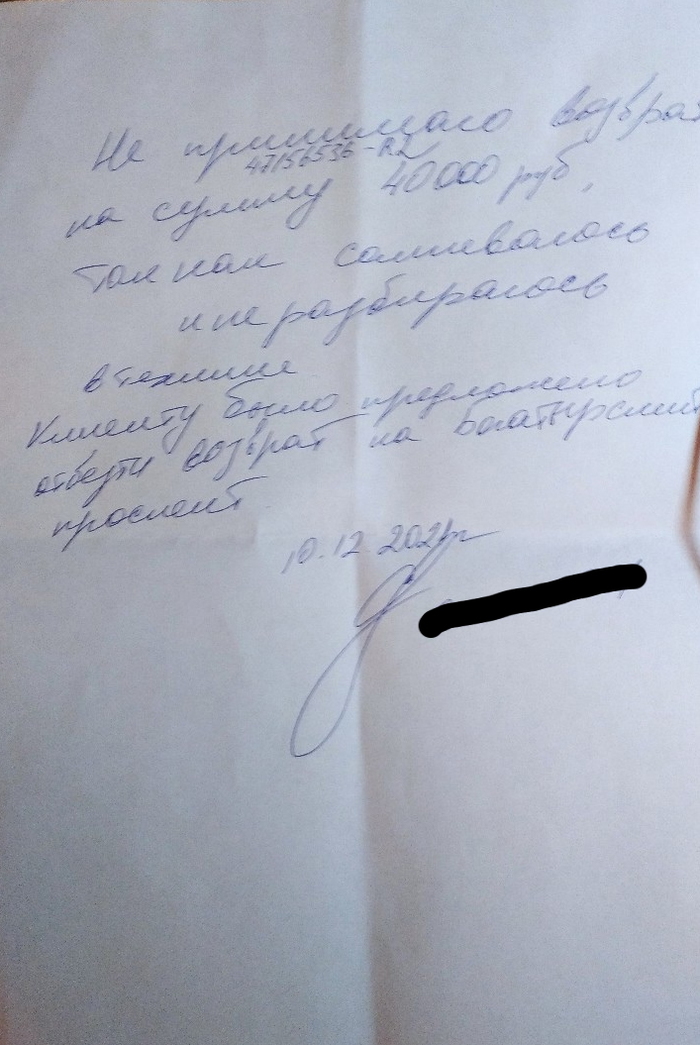 Не принимаю возврат
47156536-R2
на сумму 40000 руб,
Так как сомневаюсь
и не разбираюсь
в технике
Клиенту было предложено
отвезти возврат на Богатырский
проспект
10.12.2021г